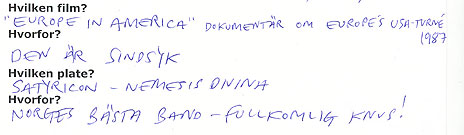 Hvilken film?
"EUROPE IN AMERICA" DOKUMENTÄR OM EUROPE'S USA-TURNÉ
1987
Hvorfor?
DEN ÄR SINDSYK
Hvilken plate?
SATYRICON - NEMESIS DIVINA
Hvorfor?
NORGES BÄSTA BAND - FULLKOMLIG KNUS!